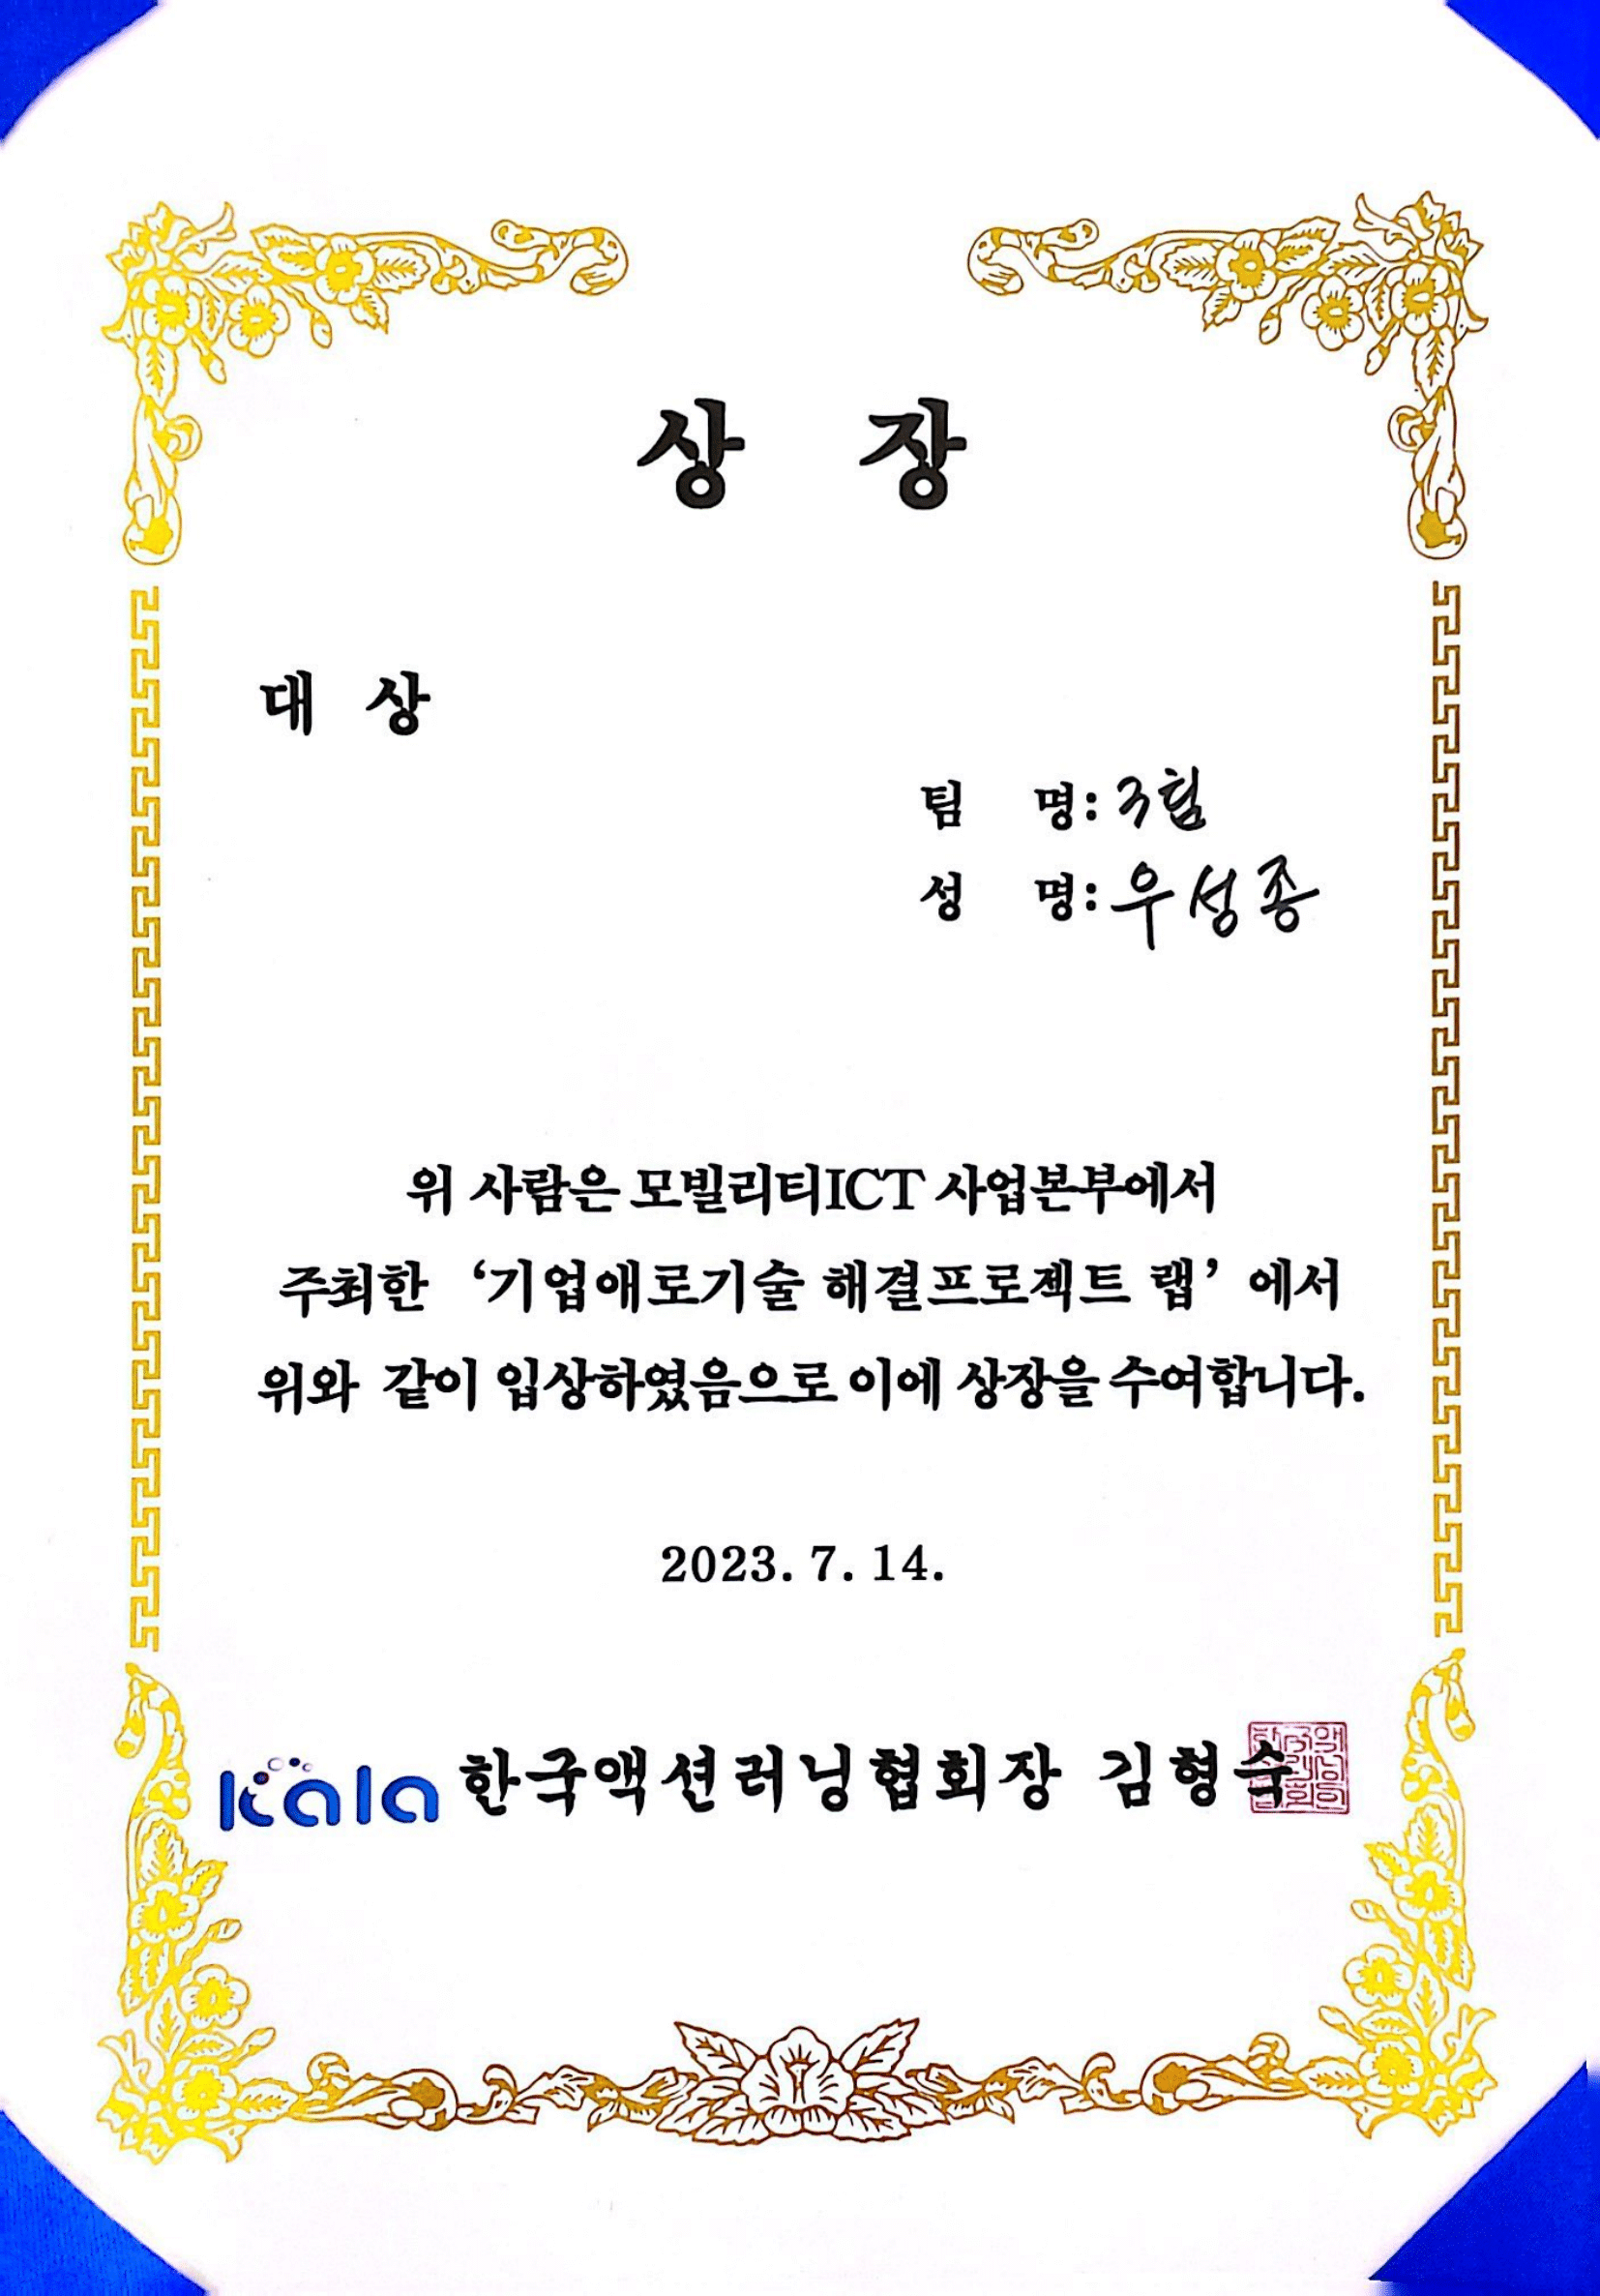 상 장
대 상
팀 명: 3팀
성 명: 우성종
위 사람은 모빌리티ICT 사업본부에서
주최한 ‘기업애로기술 해결프로젝트 랩’ 에서
위와 같이 입상하였음으로 이에 상장을 수여합니다.
2023. 7. 14.
kala 한국액션러닝협회장 김형숙